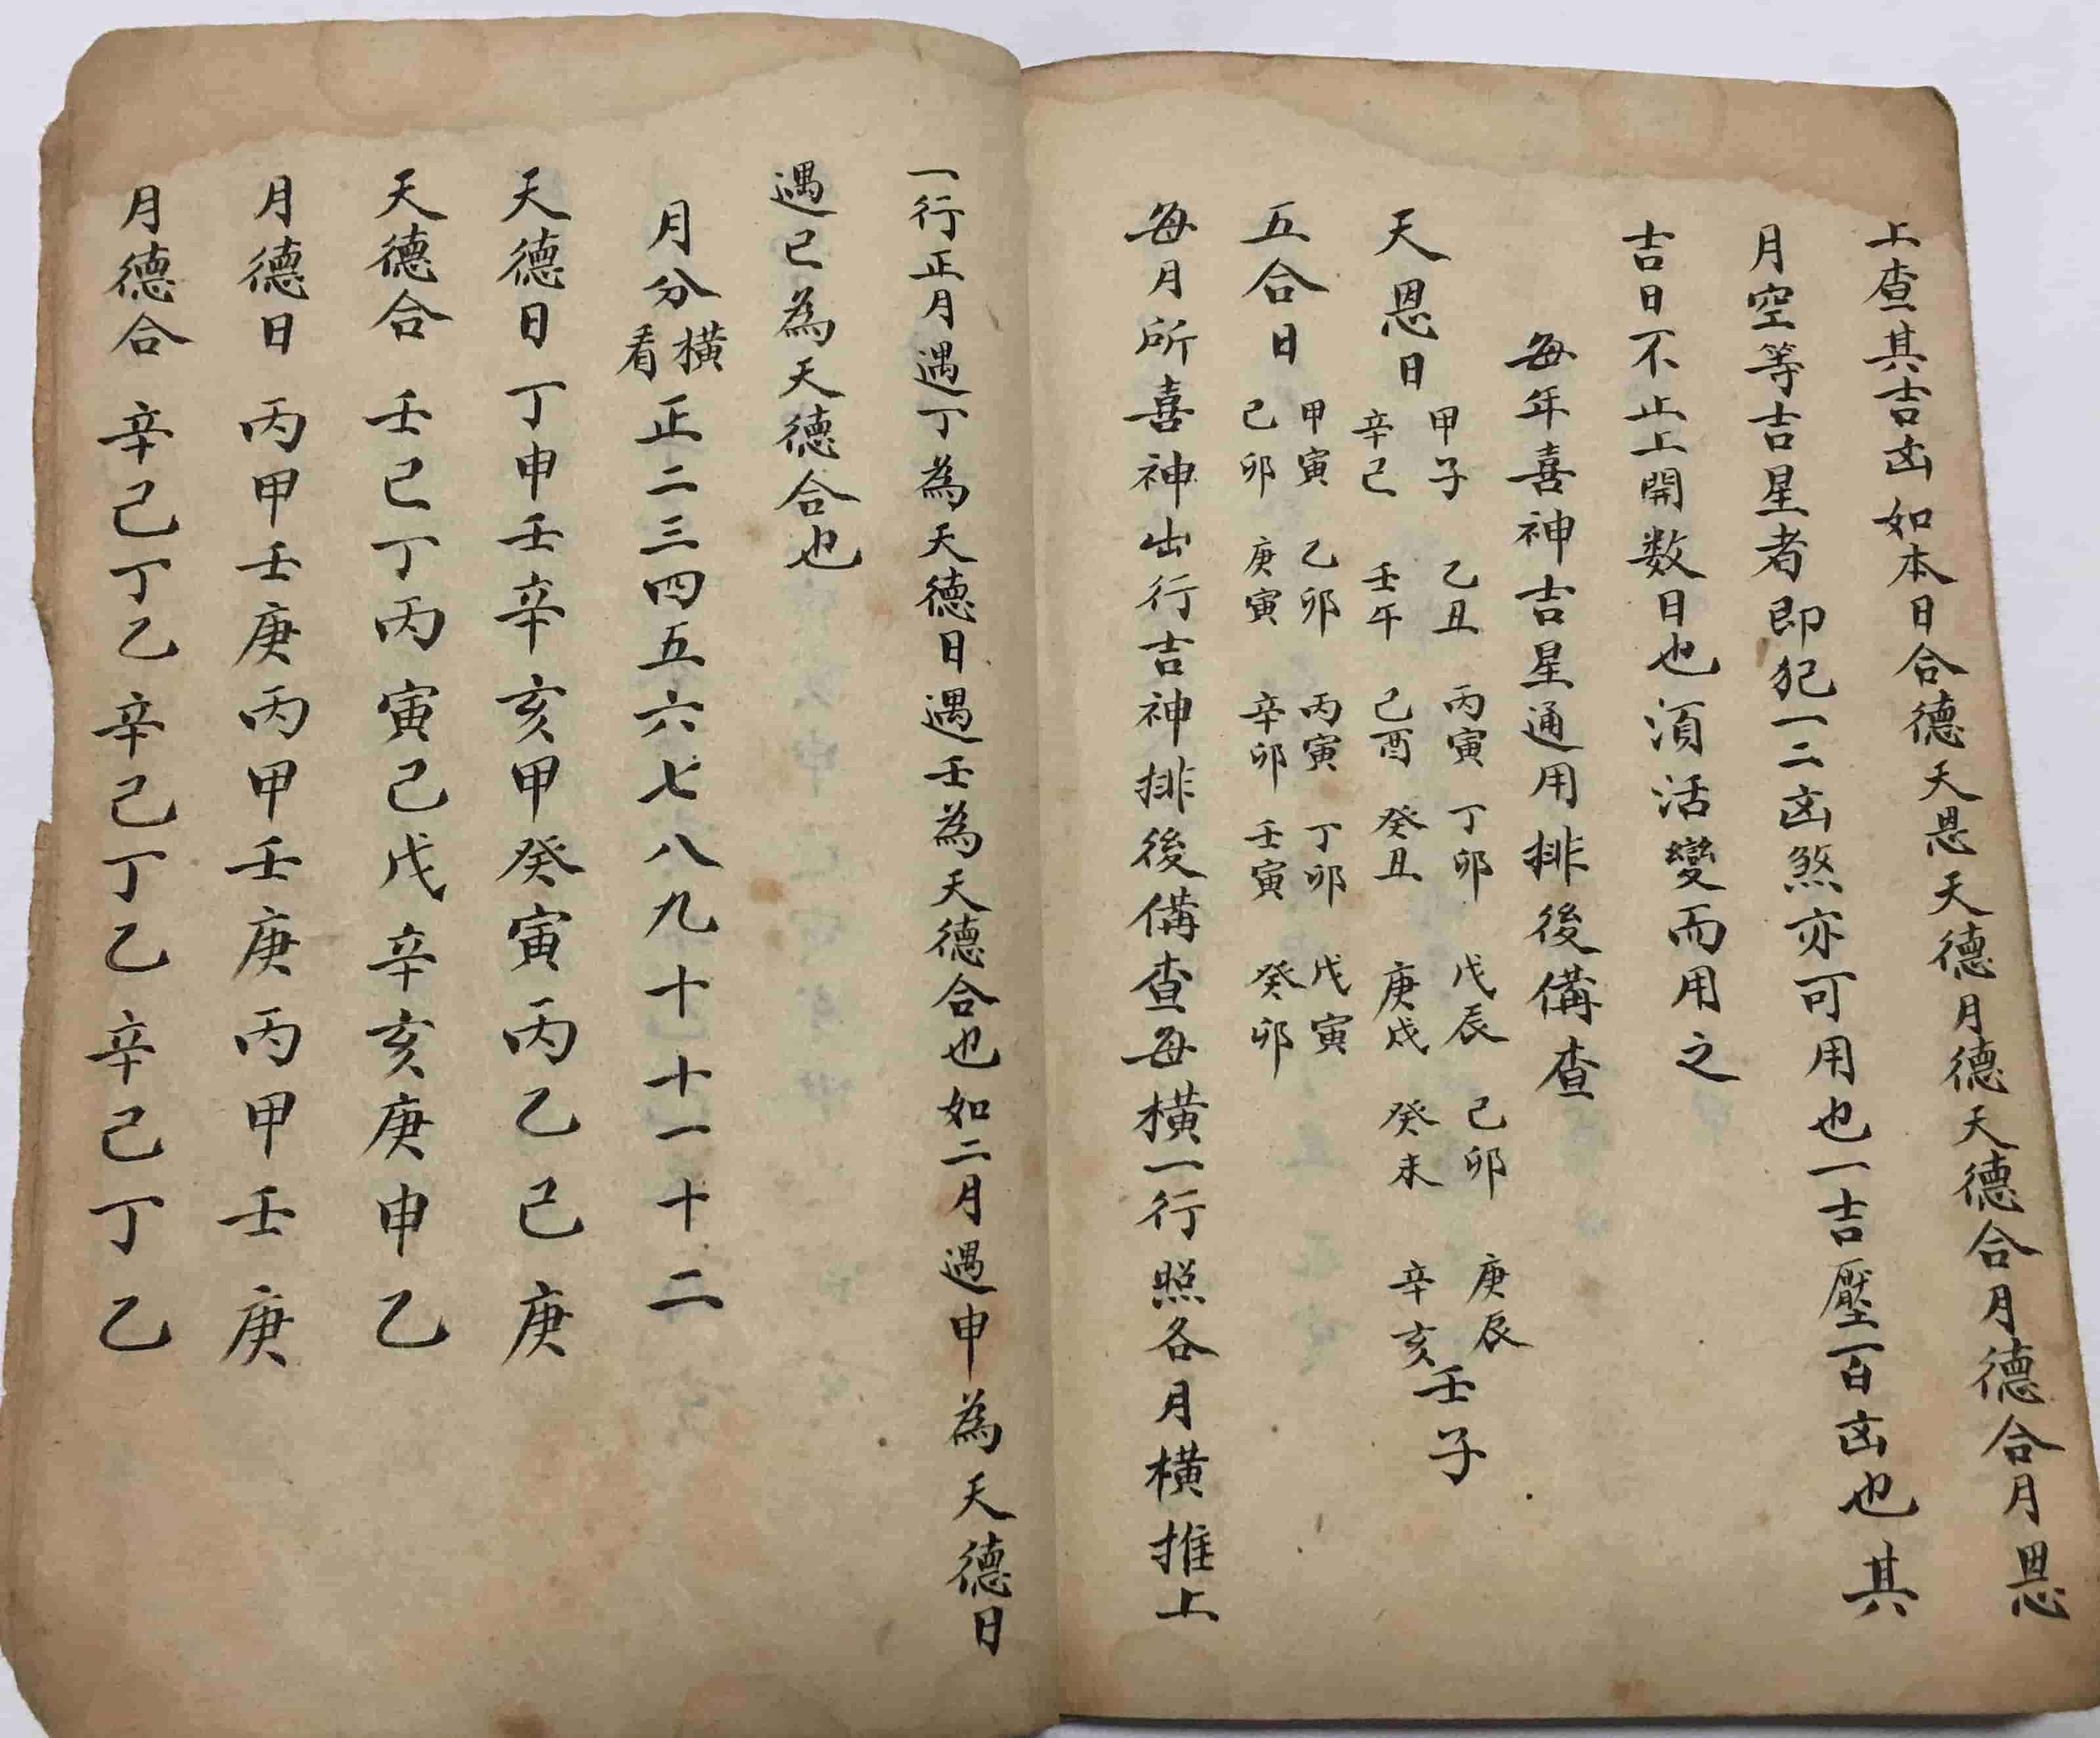 上查其吉凶如本日合德天恩天德月德天德合月德合月恩
月空等吉星者即犯一二凶煞亦可用也一吉壓百凶也其
吉日不止上開数日也須活變而用之
每年喜神吉星通用排後備查
天恩日
甲子 乙丑 丙寅 丁卯 戊辰 己卯 庚辰
辛巳 壬午 己酉 癸丑 庚戌 癸未 辛亥
壬子
五合日
甲寅 乙卯 丙寅 丁卯 戊寅
己卯 庚寅 辛卯 壬寅 癸卯
每月所喜神出行吉神排後備查每橫一行照各月橫推上
一行正月遇丁為天德日遇壬為天德合也如二月遇申為天德日
遇巳為天德合也
月分橫看正二三四五六七八九十十一十二
天德日丁申壬辛亥甲癸寅丙乙巳庚
天德合壬巳丁丙寅己戊辛亥庚申乙
月德日丙甲壬庚丙甲壬庚丙甲壬庚
月德合辛己丁乙辛己丁乙辛己丁乙